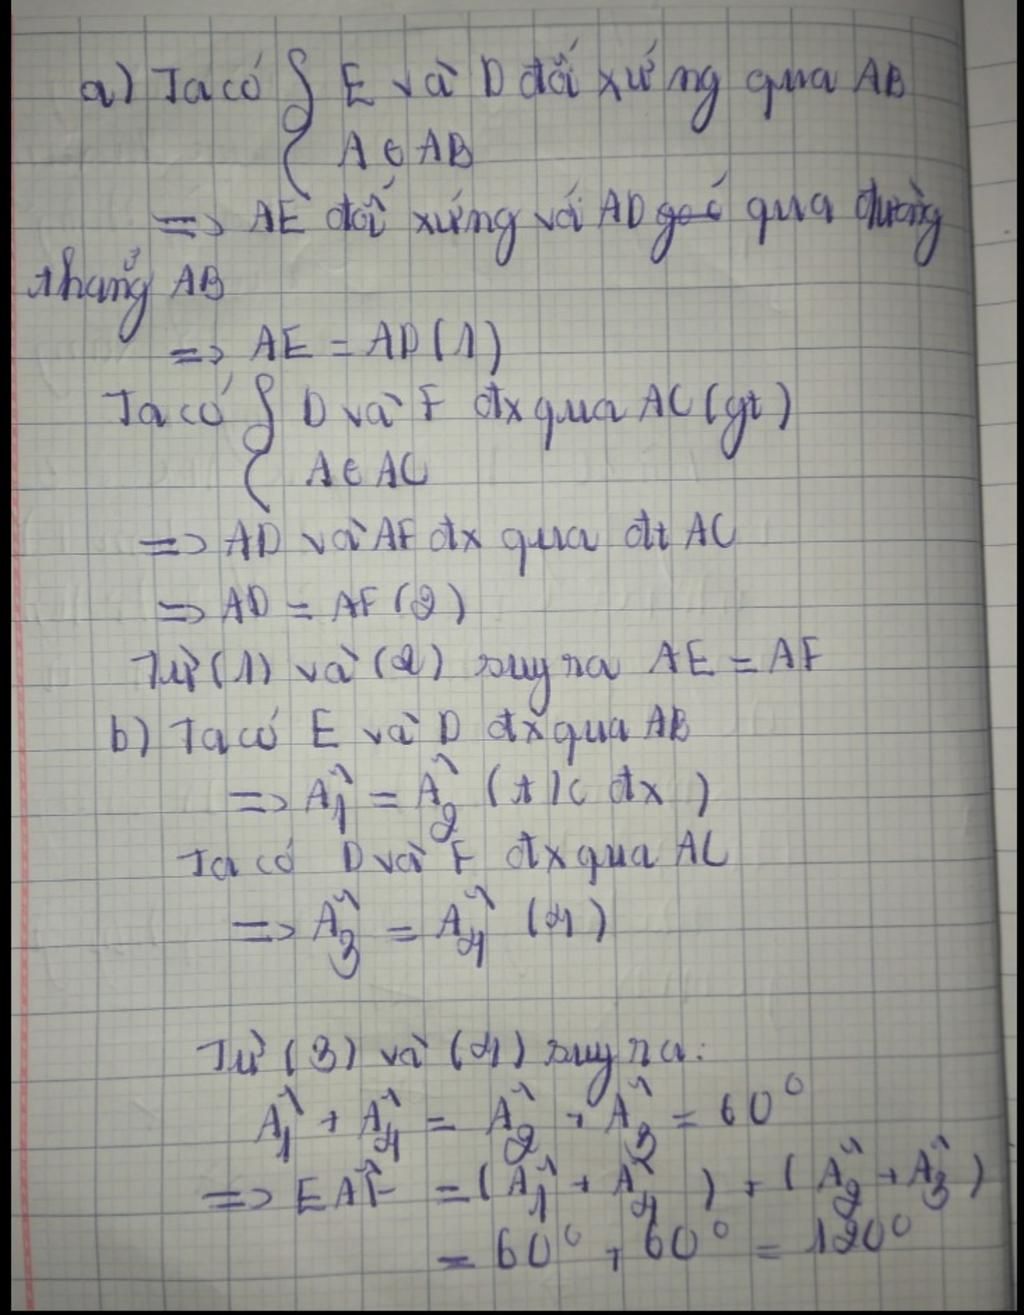 a) Ta có { E và D đối xứng qua AB
A ∈ AB
=> AE đối xứng với AD qua đường
thẳng AB
=> AE = AD (1)
Ta có { D và F đx qua AC (gt)
A ∈ AC
=> AD và AF đx qua đt AC
=> AD = AF (2)
Từ (1) và (2) suy ra AE = AF
b) Ta có E và D đx qua AB
=> Â₁ = Â₂ (t/c đx)
Ta có D và F đx qua AC
=> Â₃ = Â₄ (4)
Từ (3) và (4) suy ra:
Â₁ + Â₄ = Â₂ + Â₃ = 60°
=> EÂF = (Â₁ + Â₄) + (Â₂ + Â₃)
= 60° + 60° = 120°